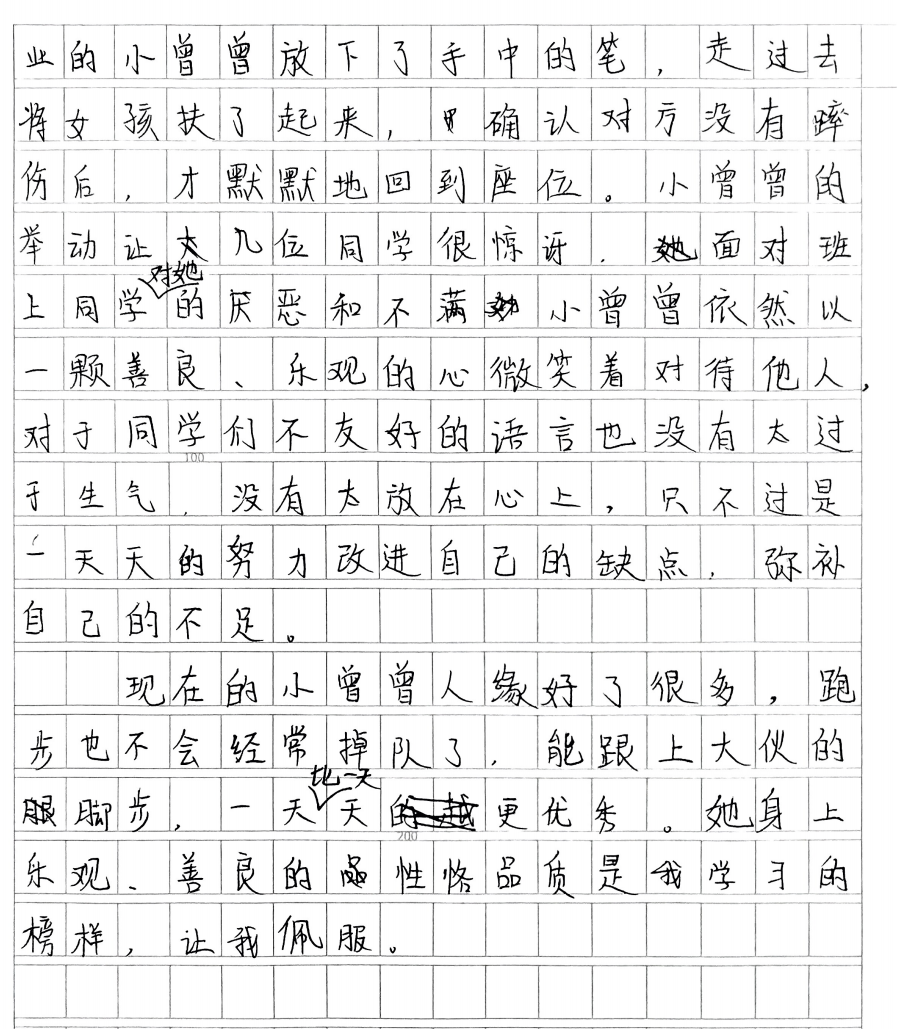 业的小曾曾放下了手中的笔，走过去
将女孩扶了起来，确认对方没有蹿
伤后，才默默地回到座位。小曾曾的
举动让大几位同学很惊讶，她面对班
上同学对她的厌恶和不满小曾曾依然以
一颗善良、乐观的心微笑着对待他人，
对于同学们不友好的语言也没有太过
100
于生气，没有太放在心上，只不过是
一天天的努力改进自己的缺点，弥补
自己的不足。
现在的小曾曾人缘好了很多，跑
步也不会经常掉队了，能跟上大伙的
脚步，一天比一天更优秀。她身上
200
乐观、善良的性格品质是我学习的
榜样，让我佩服。